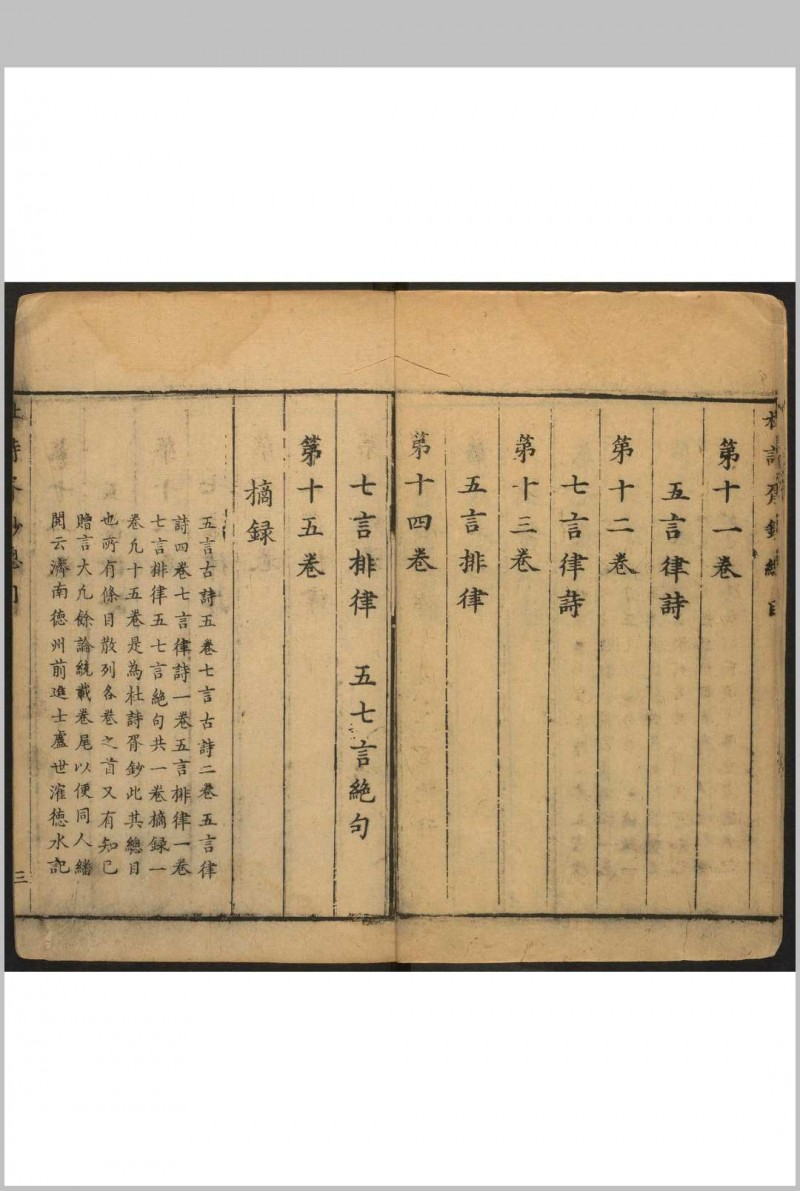 杜詩胥鈔總目
第十一卷
五言律詩
第十二卷
七言律詩
第十三卷
五言排律
第十四卷
七言排律　五七言絶句
第十五卷
摘録
五言古詩五卷七言古詩二卷五言律
詩四卷七言律詩一卷五言排律一卷
七言排律五七言絶句共一卷摘録一
卷凡十五卷是為杜詩胥鈔此其總目
也所有條目散列各卷之首又有知己
贈言大凡餘論統載卷尾以便同人繙
閲云濟南德州前進士盧世㴶德水記
三